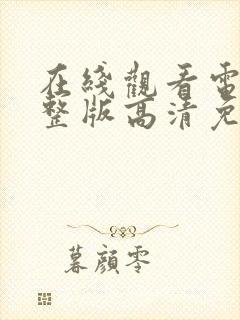 在綫觀看電
整版高清免
暮顔零